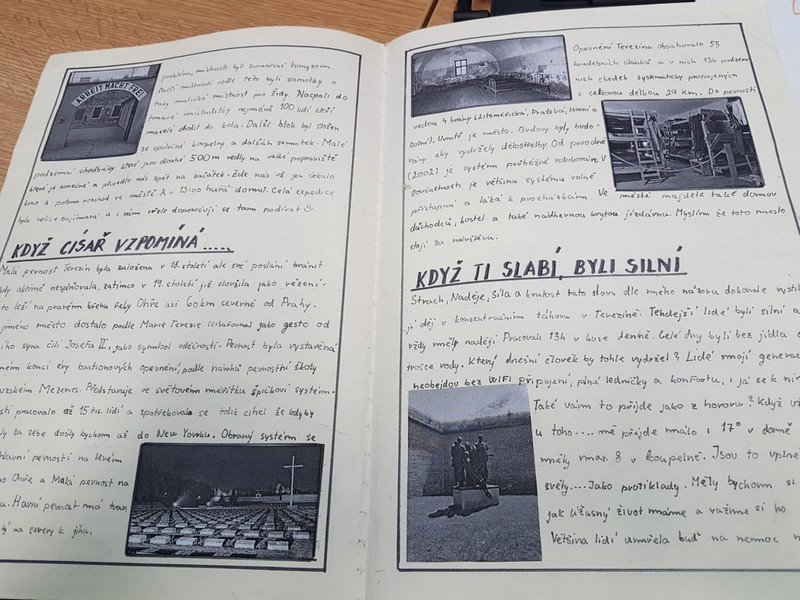 ARBEIT MACHT FREI
problém, místnosti byli zamořené hmyzem.
Další místnosti vedle této byli samotky a
taky maličká místnost pro židy. Nacpali do
tmavé místnůstky nejméně 100 lidí kteří
museli chodit do kola. Další blok byl složen
ze společné koupelny a dalších samotek. Malé
podzemní chodbičky které jsou dlouhé 500m vedly na velké popraviště
které je konečné a přivedlo nás zpět na začátek. Zde nás vě jen čekalo
kino a potom rozchod ve městě. A v 13:00 hurá domů. Celá expedice
byla velice zajímavá a i vám vřele doporučuji se tam podívat
KDYŽ CISAŘ VZPOMÍNÁ.....
Malá pevnost Terezín byla založena v 18. století ale své poslání bránit
kdy aktivně nesplňovala, zatímco v 19. století již sloužila jako vězení.
to leží na pravém břehu řeky Ohře asi 60km severně od Prahy.
jméno město dostalo podle Marie Terezie (císařovna) jako gesto od
jího syna čili Josefa II., jako symbol vděčnosti. Pevnost byla vystavěná
ném konci éry bastionových opevnění, podle návrhů pevnostní školy
uzském Mezieres. Představuje ve světovém měřítku špičkový systém.
sti pracovalo až 15 tis. lidí a spotřebovalo se tolik cihel že kdyby
ly za sebe došly bychom až do New Yorku. Obraný systém se
hlavní pevnosti na levém
ho Ohře a Malá pevnost na
u. Havní pevnost má tvar
tý na severy k jihu.
Opevnění Terezína obsahovalo 55
hradebních článků a v nich 134 podzem
ních chodeb systematicky propojených
s celkovou délkou 29 km. Do pevnosti
vedou 4 brány (Litoměřická, Pražská, Horní a
Dolní). Uvnitř je město. Budovy byly budo-
vány aby vydržely dělostřelby. Od povodně
(2002) je systém průběžně redukován. V
současnosti je většina systému volně
přístupná a láká k procházkám. Ve městě majdete také domov
důchodců, kostel a také nádhernou krytou jízdárnu. Myslím že toto město
stojí za návštěvu.
KDYŽ TI SLABÍ, BYLI SILNÍ
Strach, Naděje, Síla a krutost tato slova dle mého názoru dokovale vystih
jí děj v koncentračním táboru v Terezíně. Tehdejší lidé byli silní a
vždy měly naději. Pracovali 13h v kuse denně. Celé dny byli bez jídla a
trošce vody. Který dnešní člověk by tohle vydržel? Lidé mojí generac
neobejdou bez WIFI připojení, plné ledničky a konfortu, i já se k nim
Také vám to přijde jako z hororu? Když vz
u toho.... mě přijde málo i 17° v domě
měly max. 8 v koupelně. Jsou to úplně
světy....Jako protiklady. Měly bychom si
jak úžasný život máme a važme si ho
Většina lidí umřela buď na nemoc n